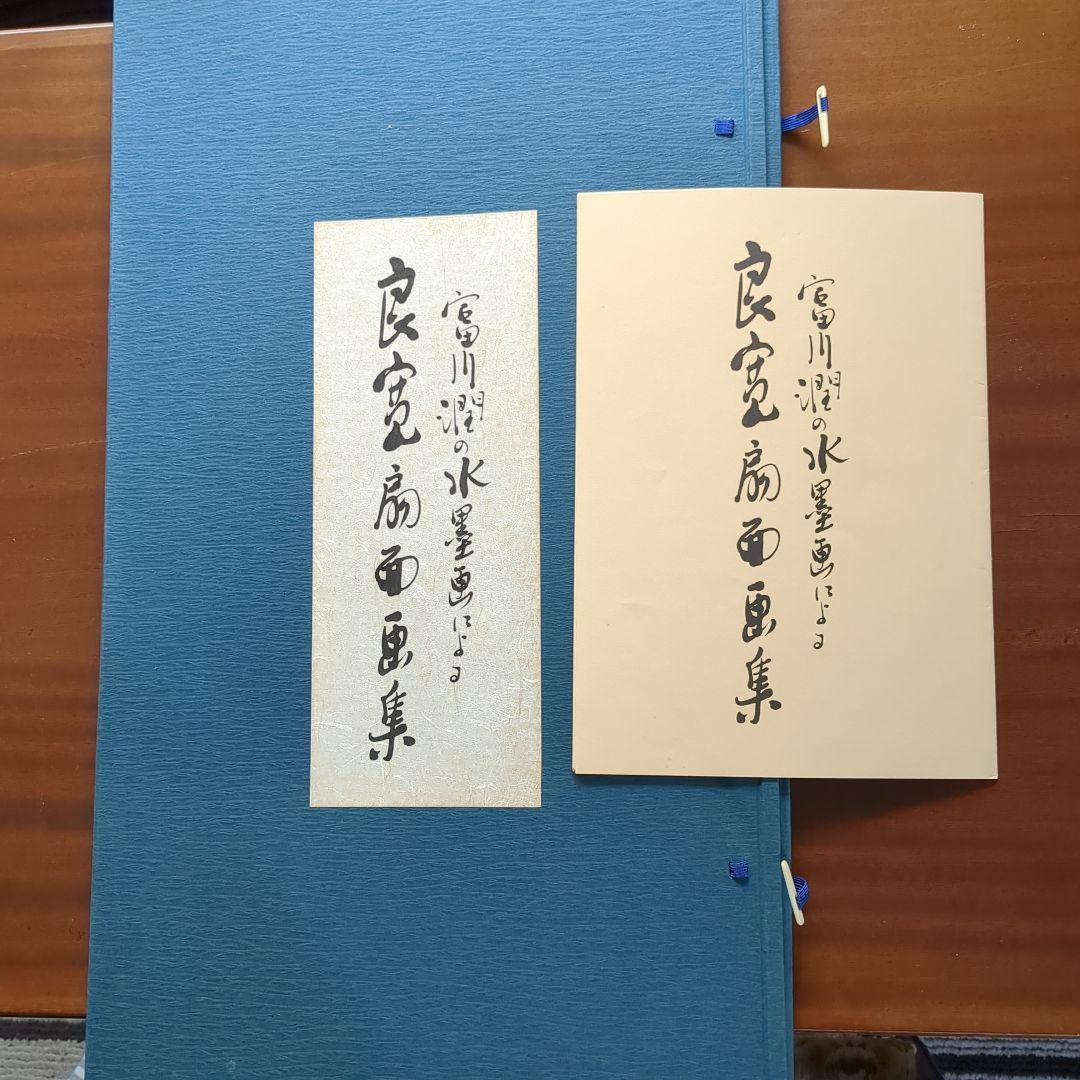 富川潤の水墨画による
良寛扇面画集
富川潤の水墨画による
良寛扇面画集